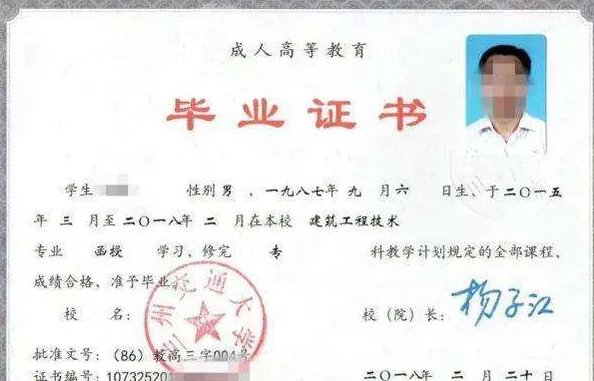 成人高等教育
毕业证书
学生 性别 男 、一九八七年 九 月 六 日生、于二〇一五
年 三 月至 二〇一八年 二 月在本校 建筑工程技术
专业 函授 学习，修完 专 科教学计划规定的全部课程，
成绩合格、准予毕业。
州交通大学
校 名： 校（院）长： 杨子江
批准文号：(86) 教高三字004号
证书编号：10732520 二〇一八年 二 月 二十 日